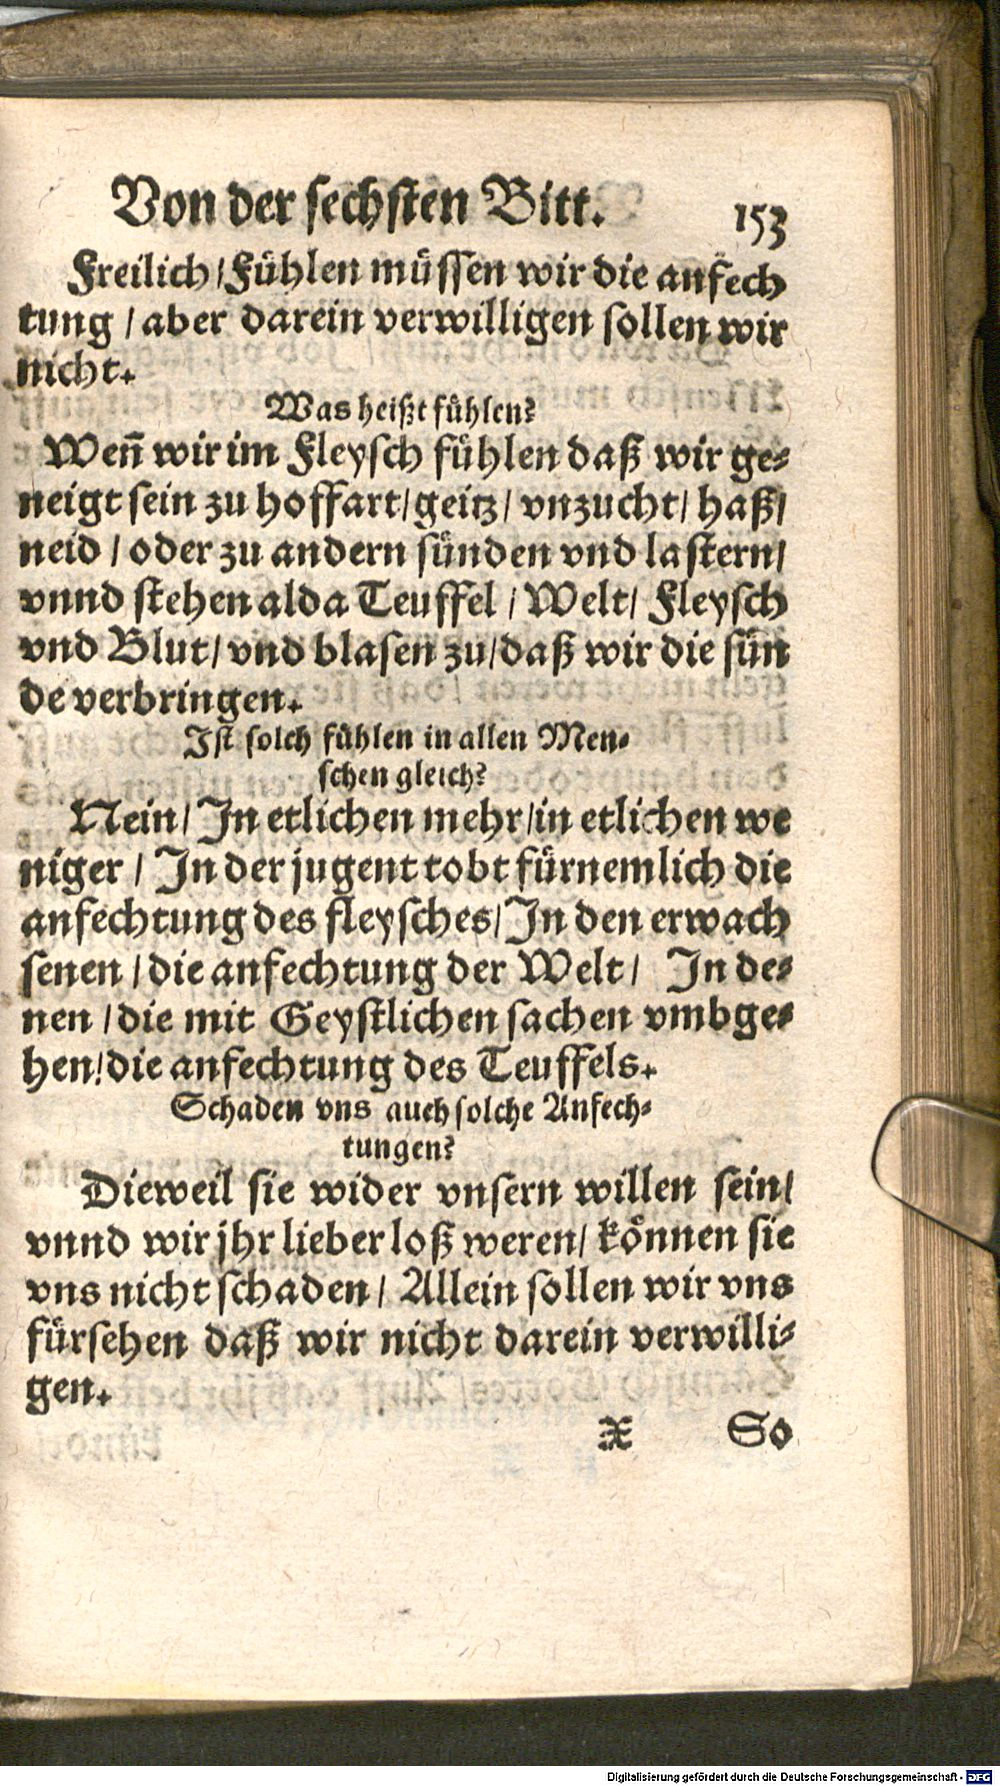 Von der sechsten Bitt. 153
Freilich / Fühlen müssen wir die anfech
tung / aber darein verwilligen sollen wir
nicht.
Was heißt fühlen?
Weñ wir im Fleysch fühlen daß wir ge-
neigt sein zu hoffart / geitz / vnzucht / haß /
neid / oder zu andern sünden vnd lastern /
vnnd stehen alda Teuffel / Welt / Fleysch
vnd Blut / vnd blasen zu / daß wir die sün
de verbringen.
Ist solch fühlen in allen Men-
schen gleich?
Nein / In etlichen mehr / in etlichen we
niger / In der jugent tobt fürnemlich die
anfechtung des fleysches / In den erwach
senen / die anfechtung der Welt / In de-
nen / die mit Geystlichen sachen vmbge-
hen / die anfechtung des Teuffels.
Schaden vns auch solche Anfech-
tungen?
Dieweil sie wider vnsern willen sein /
vnnd wir jhr lieber loß weren / können sie
vns nicht schaden / Allein sollen wir vns
fürsehen daß wir nicht darein verwilli-
gen.
X So
Digitalisierung gefördert durch die Deutsche Forschungsgemeinschaft - DFG